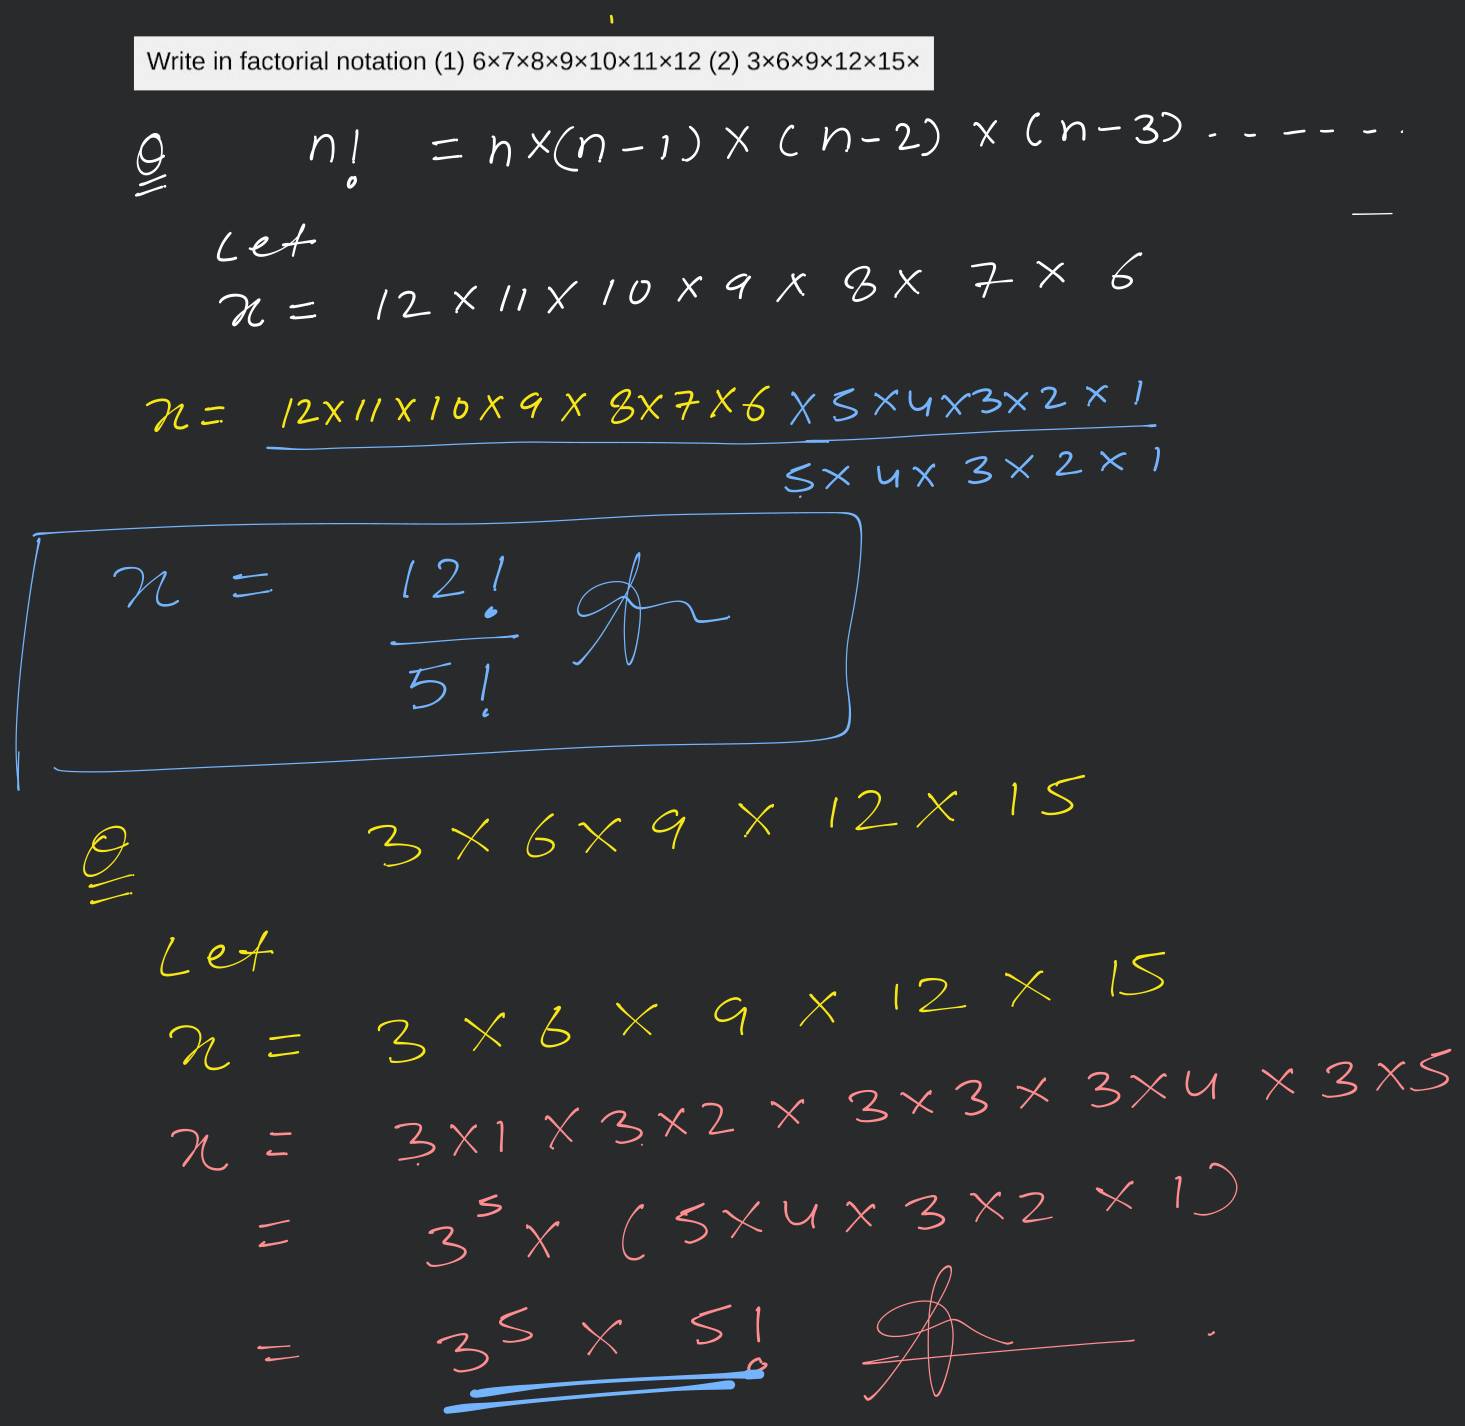 Write in factorial notation (1) 6×7×8×9×10×11×12 (2) 3×6×9×12×15×
Q n! = n×(n-1)×(n-2)×(n-3)-------
Let
x = 12×11×10×9×8×7×6
x = 12×11×10×9×8×7×6×5×4×3×2×1
5×4×3×2×1
x = 12!
5!
Q 3×6×9×12×15
Let
x = 3×6×9×12×15
x = 3×1×3×2×3×3×3×4×3×5
= 3⁵×(5×4×3×2×1)
= 3⁵×5!